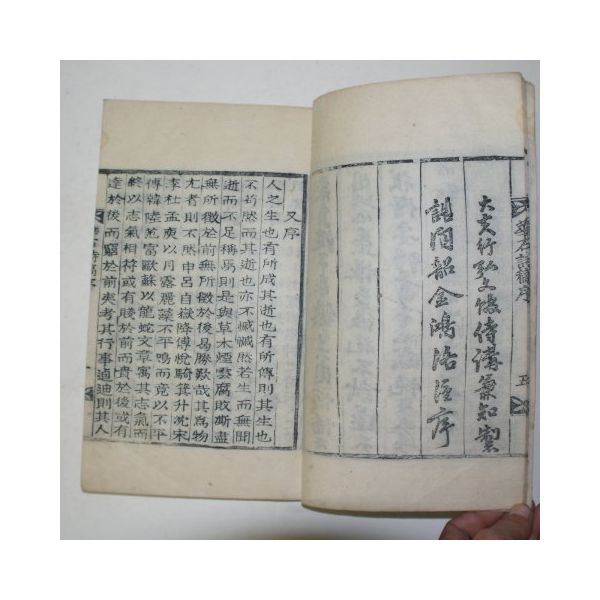 大夫行弘文館侍講兼知製
誥月城金鴻洛謹序
又序
人之生也有所成其逝也有所傳則其生也
不苟然而其逝也亦不慽慽然若生而無聞
逝而不足稱焉則是與草木煙雲腐敗澌盡
無所徵於前無所徵於後曷勝歎哉其爲物
尤者則不然申呂自嶽降傅說騎箕升沈宋
李杜孟東以月露麗藻不平鳴而竟以不平
傳韓陸范富歐蘇以龍蛇文章寓其志氣而
終以志氣相符或有賤於前而貴於後或有
達於後而窮於前夾考其行事迪迪則其人